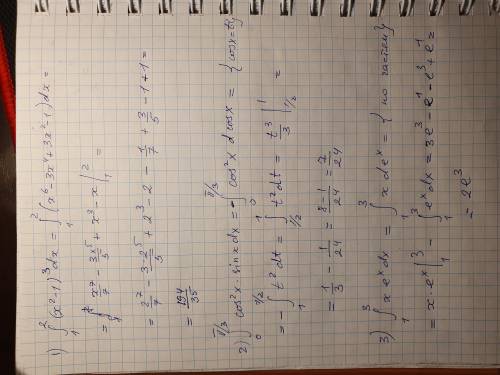 1) ∫₁² (x²-1)³dx = ∫₁² (x⁶-3x⁴+3x²-1)dx =
= x⁷/7 - 3x⁵/5 + x³ - x |₁² =
= 2⁷/7 - 3·2⁵/5 + 2³ - 2 - 1/7 + 3/5 - 1 + 1 =
= 194/35
2) ∫₀^(π/3) cos²x·sinxdx = -∫₀^(π/3) cos²x dcosx = {cosx=t} =
= -∫₁^(1/2) t²dt = ∫_(1/2)^1 t²dt = t³/3 |_(1/2)^1 =
= 1/3 - 1/24 = 8-1/24 = 7/24
3) ∫₁³ xeˣdx = ∫₁³ x deˣ = {по частям}
= x·eˣ|₁³ - ∫₁³ eˣdx = 3e³ - e¹ - e³ + e¹ =
= 2e³